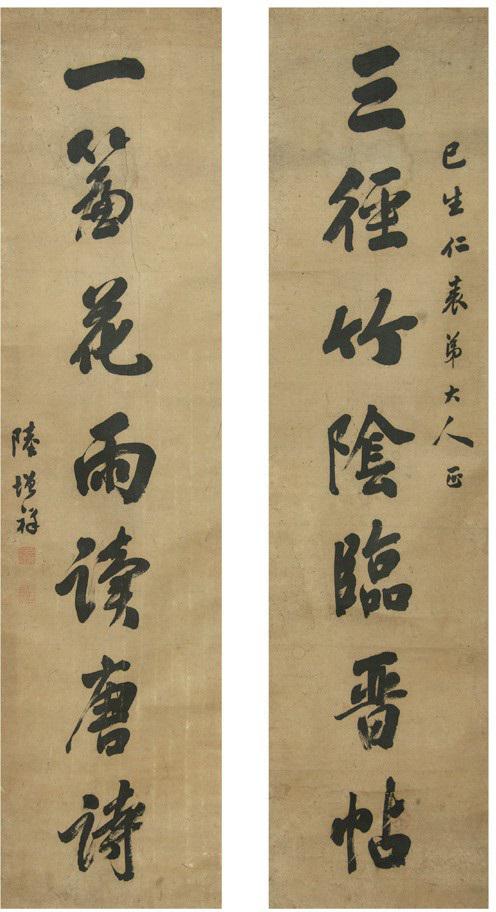 巳生仁表弟大人正
三徑竹陰臨晋帖
一簾花雨讀唐詩
陸增祥